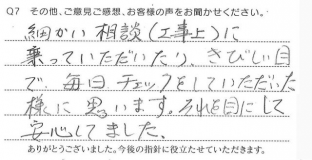 Q7 その他、ご意見ご感想、お客様の声をお聞かせください。
細かい相談（工事上）に
乗っていただいたり、きびしい目
で、毎日チェックをしていただいた
様に思います。それを目にして
安心してました。
ありがとうございました。今後の指針に役立たせていただきます。